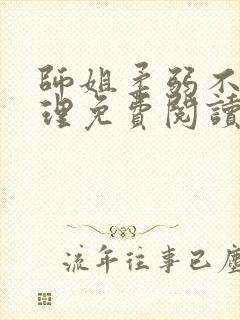 師姐柔弱不
理免費閱讀
流年往事已塵